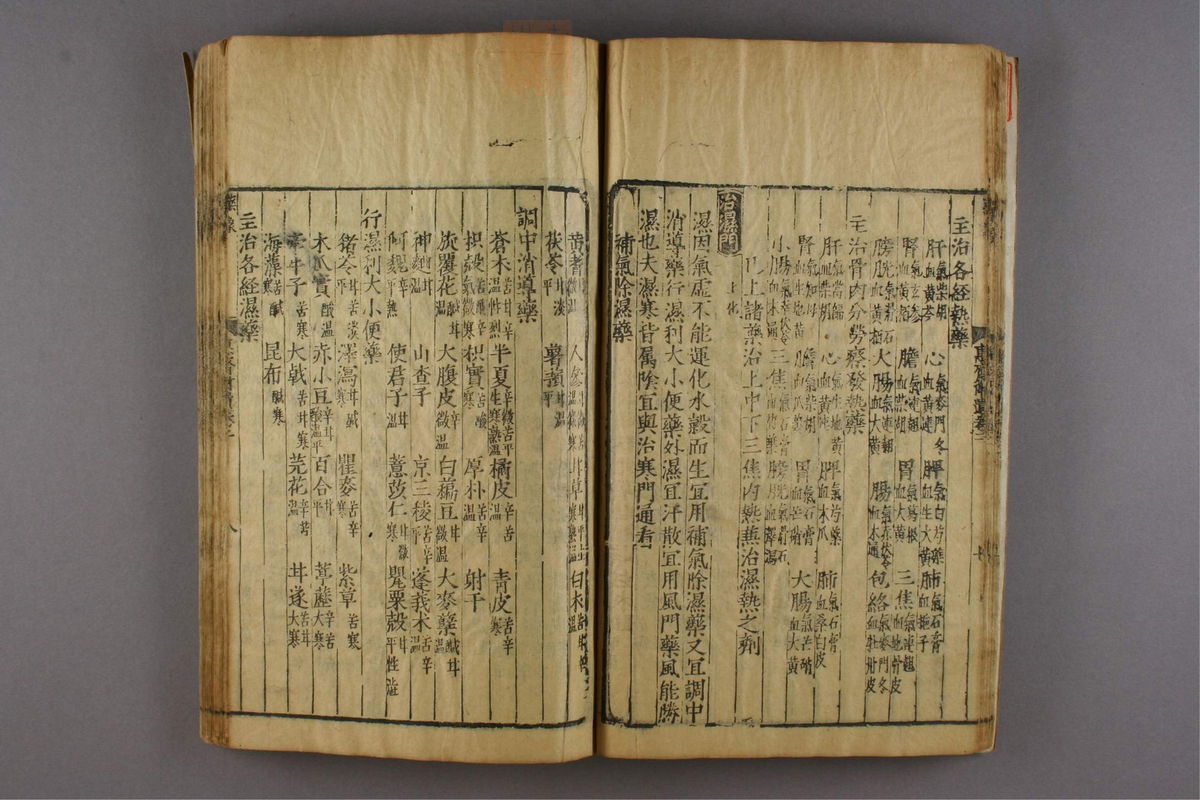 主治各經熱藥
肝 氣柴胡 血黃芩 心 氣麥門冬 血黃連 脾 氣白芍藥 血生大黃 肺 氣石膏 血梔子
腎 氣玄參 血黃栢 膽 氣連翹 血柴胡 胃 氣葛根 血大黃 三焦 氣連翹 血地骨皮
膀胱 氣滑石 血黃栢 大腸 氣連翹 血大黃 小腸 氣赤茯苓 血木通 包絡 氣麥門冬 血牡丹皮
主治骨肉分勞瘵發熱藥
肝 氣當歸 血柴胡 心 氣生地黃 血黃連 脾 氣芍藥 血木瓜 肺 氣石膏 血桑白皮
腎 氣知母 血生地黃 膽 氣柴胡 血瓜蔞 胃 氣石膏 血芒硝 大腸 氣芒硝 血大黃
小腸 氣赤茯苓 血木通 三焦 氣石膏 血竹葉 膀胱 氣滑石 血澤瀉
已上諸藥治上中下三焦內熱兼治濕熱之劑
治濕門
濕因氣虛不能運化水穀而生宜用補氣除濕藥又宜調中
消導藥行濕利大小便藥外濕宜汗散宜用風門藥風能勝
濕也夫濕寒皆屬陰宜與治寒門通看
補氣除濕藥
黃耆 甘微溫 人參 甘微苦溫 甘草 甘平生寒炙溫 白朮
茯苓 甘淡平 薯蕷 甘平
調中消導藥
蒼朮 苦甘辛溫性烈 半夏 辛微苦平生寒熟溫 橘皮 辛苦溫 青皮 苦辛寒
枳殼 苦酸微寒 枳實 苦酸寒 厚朴 苦辛溫 射干
旋覆花 鹹甘溫 大腹皮 辛微溫 白藊豆 甘微溫 大麥櫱 鹹甘溫
神麯 甘溫 山查子 京三稜 苦辛平 蓬莪朮 苦辛溫
阿魏 辛熱 使君子 甘溫 薏苡仁 甘微寒 罌粟殼 甘平性澁
行濕利大小便藥
猪苓 甘淡平 澤瀉 甘鹹寒 瞿麥 苦辛寒 紫草 苦寒
木瓜實 酸溫 赤小豆 辛甘酸溫平 百合 甘平 葶藶 辛苦大寒
牽牛子 苦寒 大戟 苦甘寒 芫花 辛苦溫 甘遂 苦甘大寒
海藻 苦鹹寒 昆布 鹹寒
主治各經濕藥